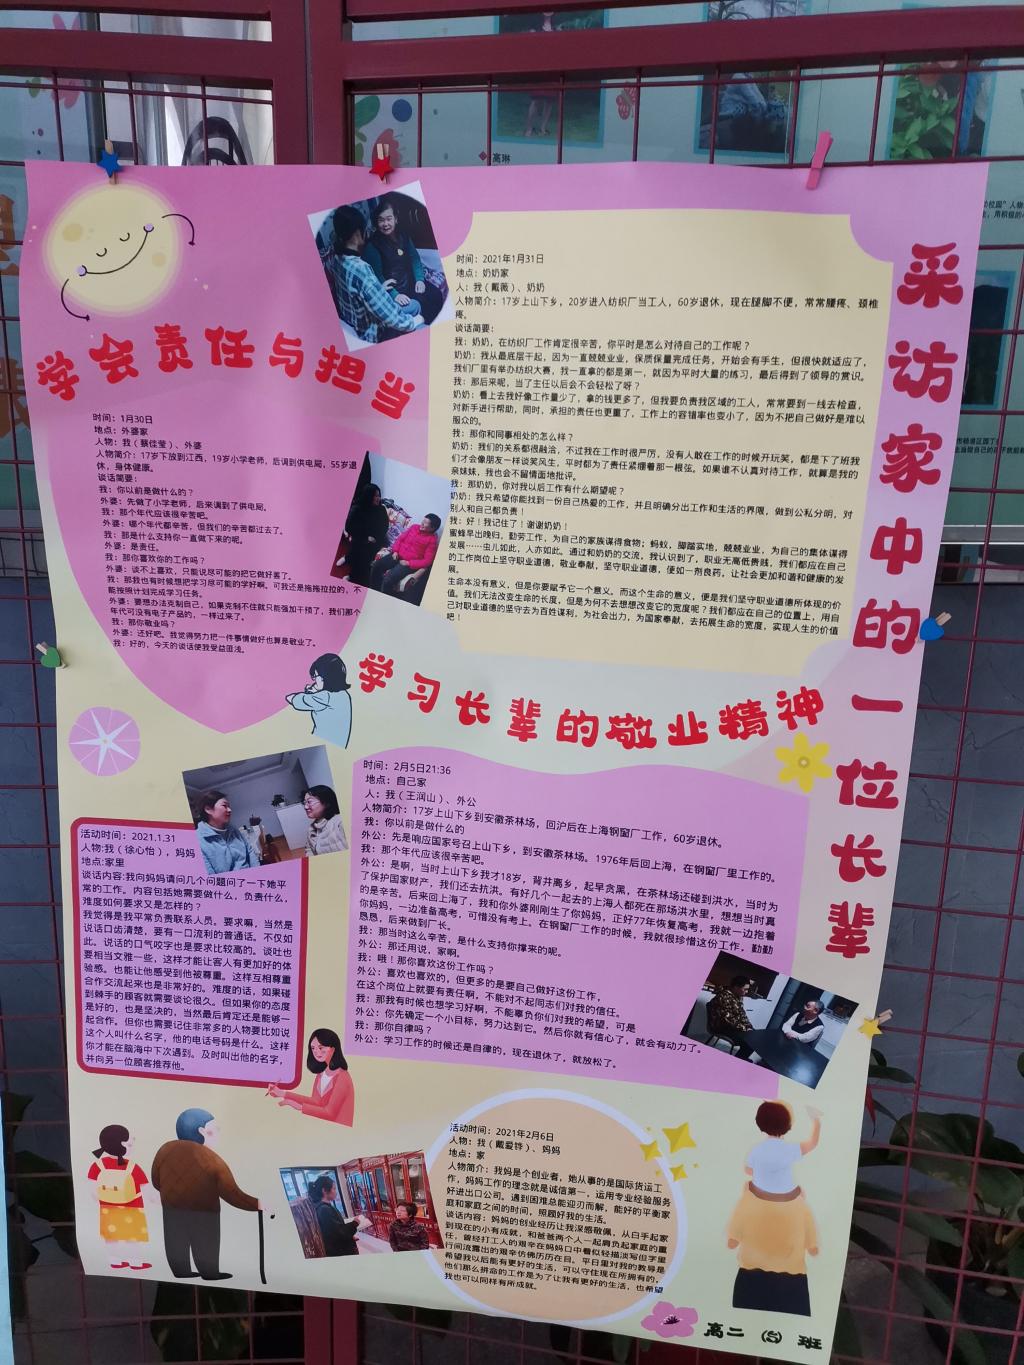 采访家中的一位长辈
学会责任与担当
时间：1月30日
地点：外婆家
人物：我（蔡佳莹）、外婆
人物简介：17岁下放到江西，19岁小学老师，后调到供电局，55岁退
休，身体健康。
谈话简要：
我：你以前是做什么的？
外婆：先做了小学老师，后来调到了供电局。
我：那个年代应该很辛苦吧。
外婆：哪个年代都辛苦，但我们的辛苦都过去了。
我：那是什么支持你一直做下来的呢。
外婆：是责任。
我：那你喜欢你的工作吗？
外婆：谈不上喜欢，只能说尽可能的把它做好罢了。
我：那我也有时候想把学习尽可能的学好啊。可我还是拖拖拉拉的，不
能按照计划完成学习任务。
外婆：要想办法克制自己，如果克制不住就只能强加干预了，我们那个
年代可没有电子产品的，一样过来了。
我：那你敬业吗？
外婆：还好吧。我觉得努力把一件事情做好也算是敬业了。
我：好的，今天的谈话使我受益匪浅。
时间：2021年1月31日
地点：奶奶家
人：我（戴薇）、奶奶
人物简介：17岁上山下乡，20岁进入纺织厂当工人，60岁退休，现在腿脚不便，常常腰疼、颈椎
疼。
谈话简要：
我：奶奶，在纺织厂工作肯定很辛苦，你平时是怎么对待自己的工作呢？
奶奶：我从最底层干起，因为一直兢兢业业，保质保量完成任务，开始会有手生，但很快就适应了，
我们厂里有举办纺织大赛，我一直拿的都是第一，就因为平时大量的练习，最后得到了领导的赏识。
我：那后来呢，当了主任以后会不会轻松了呀？
奶奶：看上去我好像工作量少了，拿的钱更多了，但我要负责我区域的工人，常常要到一线去检查，
对新手进行帮助，同时，承担的责任也更重了，工作上的容错率也变小了，因为不把自己做好是难以
服众的。
我：那你和同事相处的怎么样？
奶奶：我们的关系都很融洽，不过我在工作时很严厉，没有人敢在工作的时候开玩笑，都是下了班我
们才会像朋友一样谈笑风生，平时都为了责任紧绷着那一根弦。如果谁不认真对待工作，就算是我的
亲妹妹，我也会不留情面地批评。
我：那奶奶，你对我以后工作有什么期望呢？
奶奶：我只希望你能找到一份自己热爱的工作，并且明确分出工作和生活的界限，做到公私分明，对
别人和自己都负责！
我：好！我记住了！谢谢奶奶！
蜜蜂早出晚归，勤劳工作，为自己的家族谋得食物；蚂蚁，脚踏实地，兢兢业业，为自己的集体谋得
发展……虫儿如此，人亦如此。通过和奶奶的交流，我认识到了，职业无高低贵贱，我们都应在自己
的工作岗位上坚守职业道德，敬业奉献，坚守职业道德，便如一剂良药，让社会更加和谐和健康的发
展。
生命本没有意义，但是你要赋予它一个意义。而这个生命的意义，便是我们坚守职业道德所体现的价
值。我们无法改变生命的长度，但是为何不去想想改变它的宽度呢？我们都应在自己的位置上，用自
己对职业道德的坚守去为百姓谋利，为社会出力，为国家奉献，去拓展生命的宽度，实现人生的价值
吧！
学习长辈的敬业精神
时间：2月5日21:36
地点：自己家
人：我（王润山）、外公
人物简介：17岁上山下乡到安徽茶林场，回沪后在上海钢窗厂工作，60岁退休。
我：你以前是做什么的
外公：先是响应国家号召上山下乡，到安徽茶林场。1976年后回上海，在钢窗厂里工作的。
我：那个年代应该很辛苦吧。
外公：是啊，当时上山下乡我才18岁，背井离乡，起早贪黑，在茶林场还碰到洪水，当时为
了保护国家财产，我们还去抗洪。有好几个一起去的上海人都死在那场洪水里，想想当时真
的是辛苦。后来回上海了，我和你外婆刚刚生了你妈妈，正好77年恢复高考，我就一边抱着
你妈妈，一边准备高考，可惜没有考上。在钢窗厂工作的时候，我就很珍惜这份工作，勤勤
恳恳，后来做到厂长。
我：那当时这么辛苦，是什么支持你撑来的呢。
外公：那还用说，家啊。
我：哦！那你喜欢这份工作吗？
外公：喜欢也喜欢的，但更多的是要自己做好这份工作，
在这个岗位上就要有责任啊，不能对不起同志们对我的信任。
我：那我有时候也想学习好啊，不能辜负你们对我的希望，可是
外公：你先确定一个小目标，努力达到它。然后你就有信心了，就会有动力了。
我：那你自律吗？
外公：学习工作的时候还是自律的，现在退休了，就放松了。
活动时间：2021.1.31
人物:我（徐心怡），妈妈
地点:家里
谈话内容:我向妈妈请问几个问题问了一下她平
常的工作。内容包括她需要做什么，负责什么，
难度如何要求又是怎样的？
我觉得是我平常负责联系人员。要求嘛，当然是
说话口齿清楚，要有一口流利的普通话。不仅如
此。说话的口气咬字也是要求比较高的。谈吐也
要相当文雅一些，这样才能让客人有更加好的体
验感。也能让他感受到他被尊重。这样互相尊重
合作交流起来也是非常好的。难度的话，如果碰
到棘手的顾客就需要谈论很久。但如果你的态度
是好的，也是坚决的，当然最后肯定还是能够一
起合作。但你也需要记住非常多的人物要比如说
这个人叫什么名字，他的电话号码是什么。这样
你才能在脑海中下次遇到。及时叫出他的名字，
并向另一位顾客推荐他。
活动时间：2021年2月6日
人物：我（戴爱铧）、妈妈
地点：家
人物简介：我妈是个创业者，她从事的是国际货运工
作，妈妈工作的理念就是诚信第一，运用专业经验服务
好进出口公司。遇到困难总能迎刃而解，能好的平衡家
庭和家庭之间的时间，照顾好我的生活。
谈话内容：妈妈的创业经历让我深感敬佩，从白手起家
到现在的小有成就，和爸爸两个人一起肩负起家庭的重
任，曾经打工人的艰辛在妈妈口中看似轻描淡写但字里
行间流露出的艰辛仿佛历历在目。平日里对我的教导是
希望我以后能有更好的生活，可以守住现在所拥有的。
他们那么拼命的工作是为了让我有更好的生活，也希望
我也可以同样有所成就。
高二（5）班
高琳